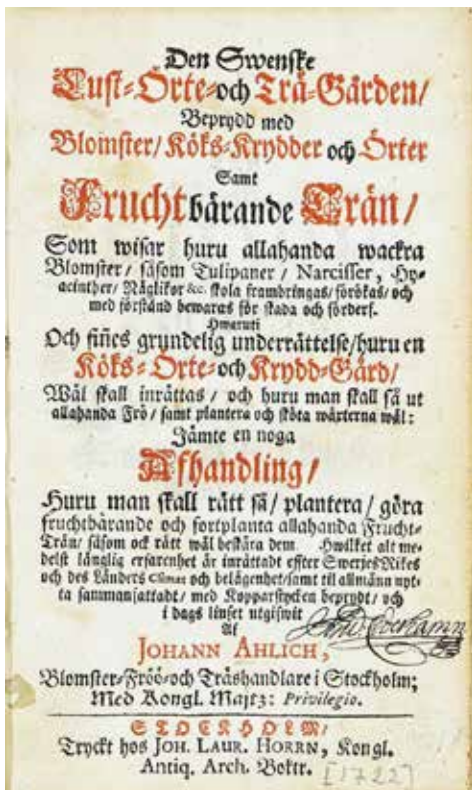 Den Swenske
Lust-Örte-och Trä-Gården/
Beprydd med
Blomster/ Köks-Krydder och Örter
Samt
Fruchtbärande Trän/
Som wisar huru allahanda wackra
Blomster/ såsom Tulipaner/ Narcisser, Hy-
acinther/ Näglikor &c. skola frambringas/ förökas/ och
med förstånd bewaras för skada och förderf.
Hwaruti
Och fiñes grundelig underrättelse/huru en
Köks-Örte-och Krydd-Gård/
Wäl skall inrättas/ och huru man skall så ut
allahanda Frö/ samt plantera och sköta wäxterna wäl:
Jämte en noga
Afhandling/
Huru man skall rätt så/ plantera/ göra
fruchtbärande och fortplanta allahanda Frucht-
Trän/ såsom ock rätt wäl beskära dem Hwilket alt me-
delst långlig erfarenhet är inrättadt effter Swerjes Rikes
och des Länders Climat och belägenhet/samt til allmänn nyt-
ta sammanfattadt/ med Kopparstycken beprydt/ och
i dags liuset utgifwit
Af
JOHANN AHLICH,
Blomster-Fröö-och Träshandlare i Stockholm;
Med Kongl. Maj:tz: Privilegio.
STOCKHOLM/
Tryckt hos JOH. LAUR. HORRN, Kongl.
Antiq. Arch. Boktr.
[1722]